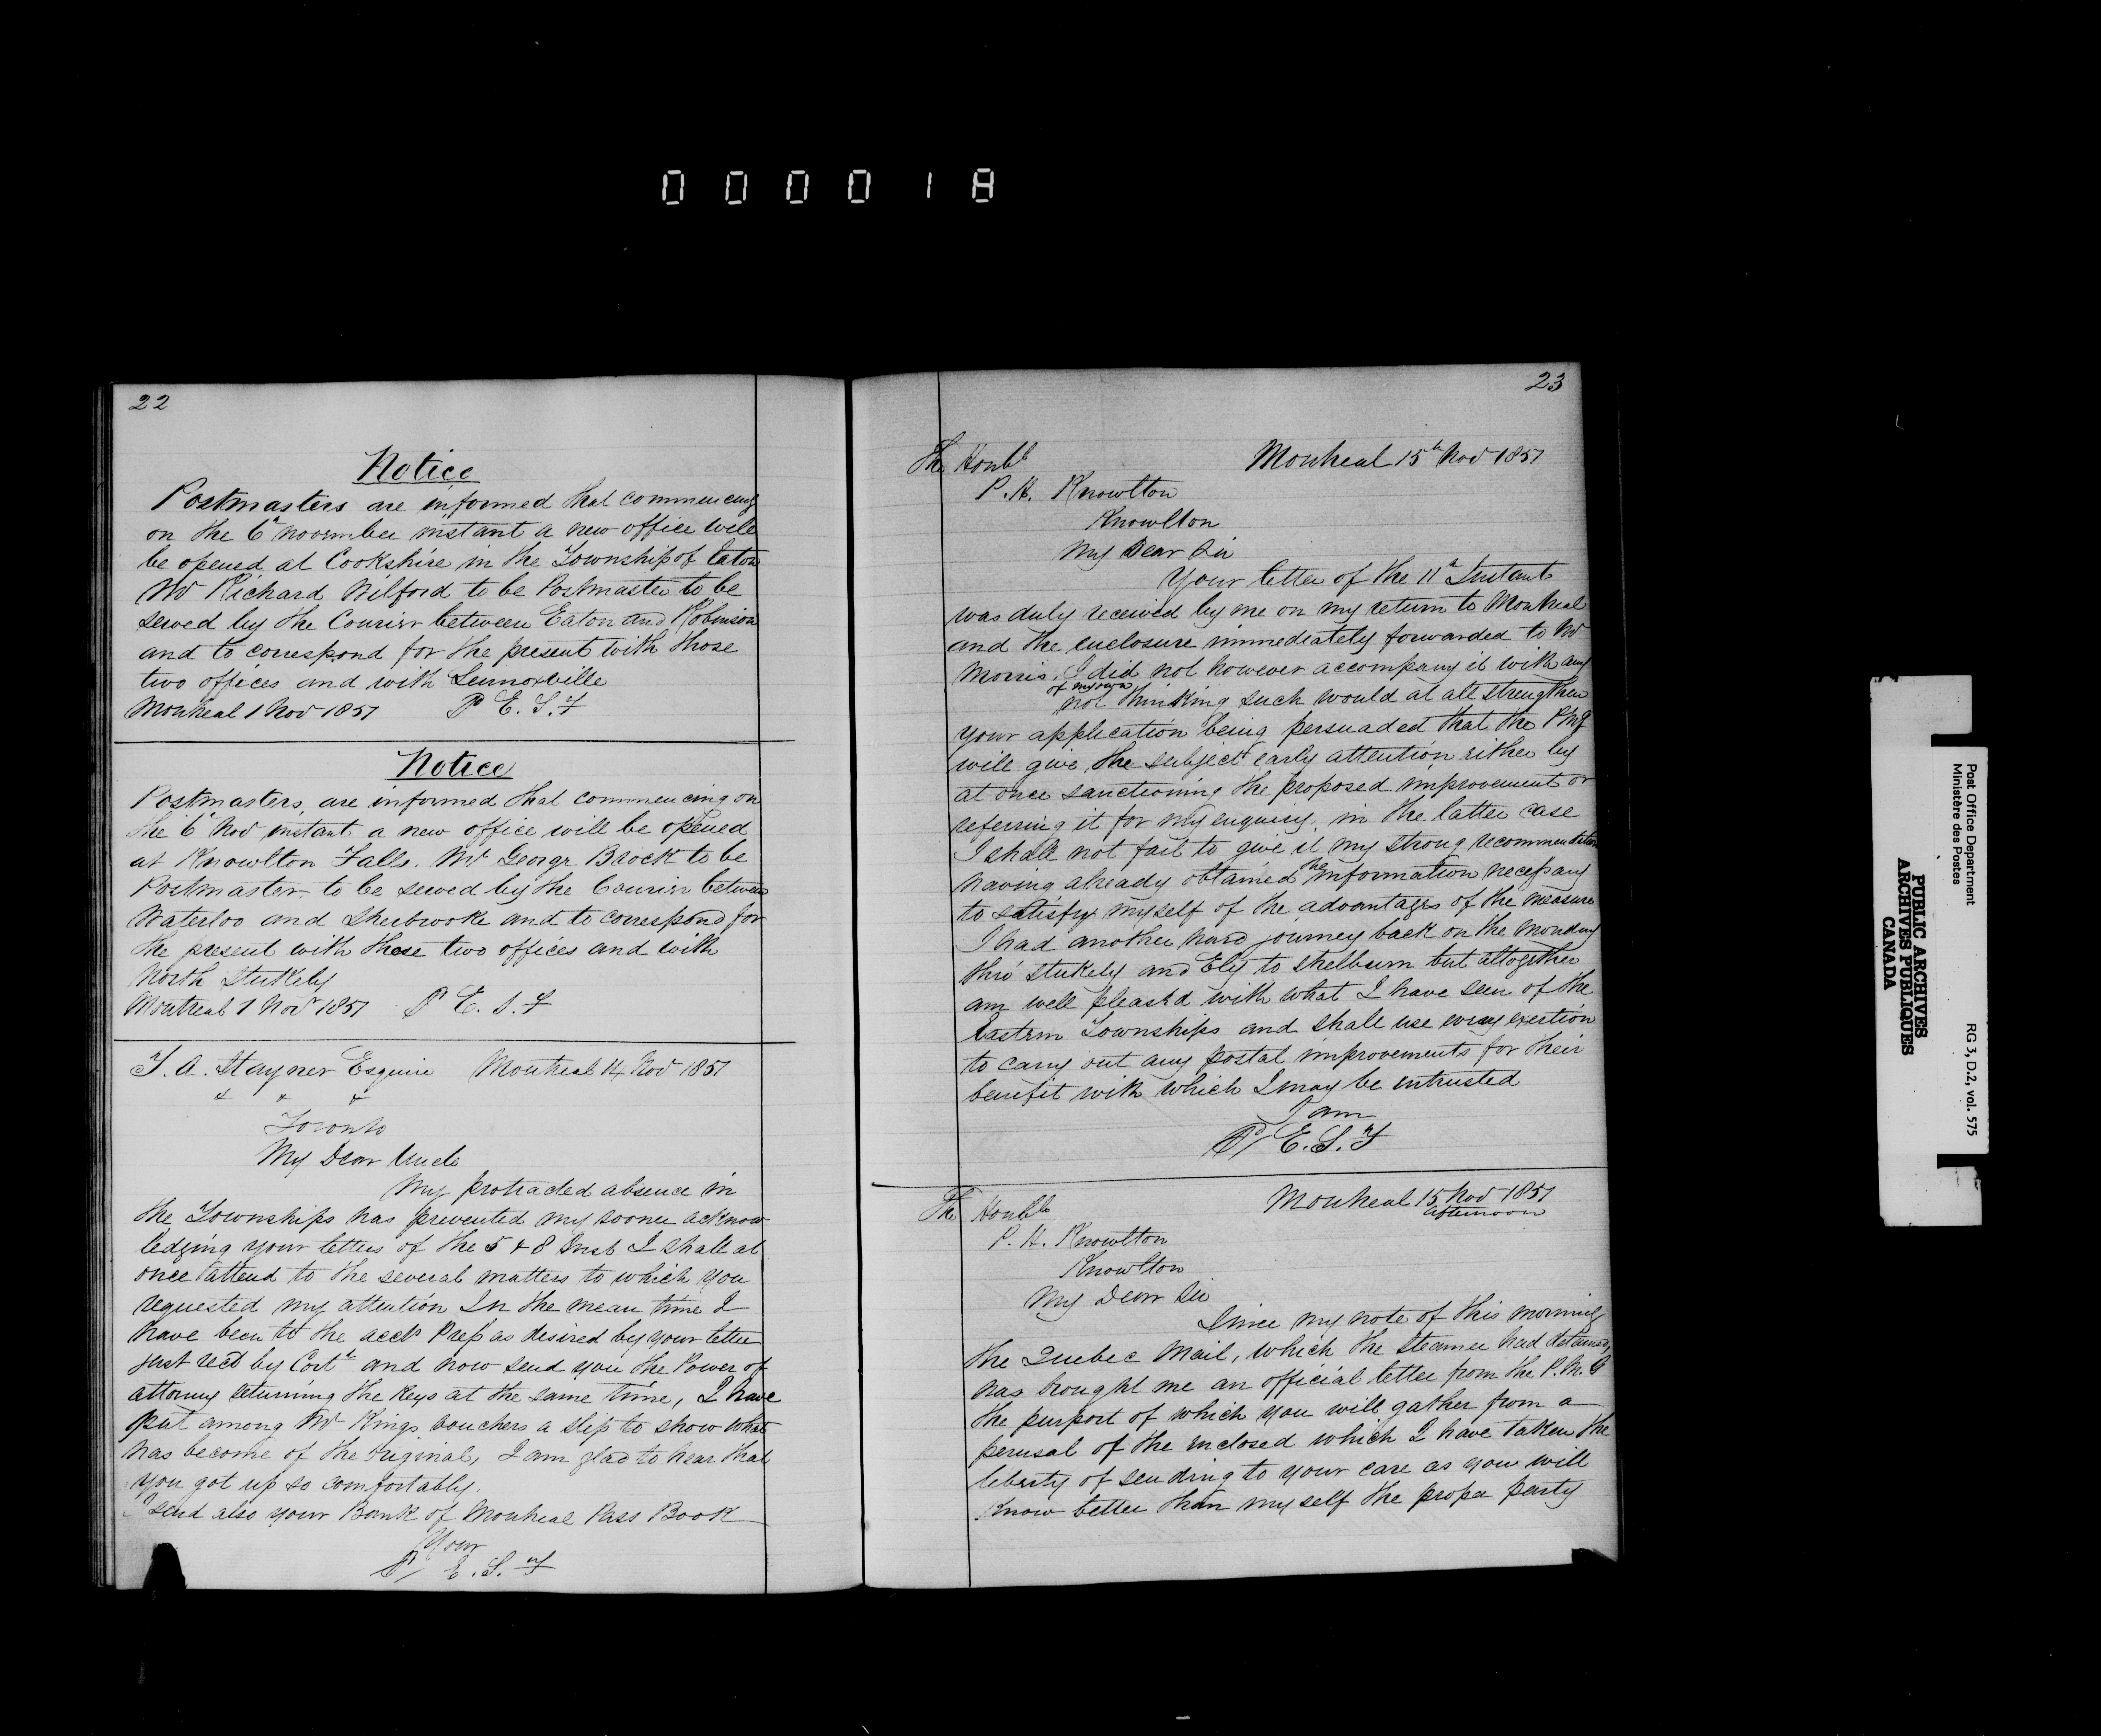 000018
22
Notice
Postmasters are informed that commencing
on the 6th november instant a new office will
be opened at Cookshire in the Township of Eaton
Mr Richard Wilford to be Postmaster to be
served by the Courier between Eaton and Robinson
and to correspond for the present with those
two offices and with Lennoxville
Montreal 1 Nov 1851 E. S.
Notice
Postmasters are informed that commencing on
the 6th Nov instant a new office will be opened
at Knowlton Falls. Mr George Brock to be
Postmaster to be served by the Courier between
Waterloo and Sherbrooke and to correspond for
the present with these two offices and with
North Stukely
Montreal 1 Nov 1851 E. S.
T. A. Stayner Esquire Montreal 14 Nov 1851
Toronto
My Dear Uncle
My protracted absence in
the Townships has prevented my sooner acknow
ledging your letters of the 5 & 8 Inst I shall at
once attend to the several matters to which you
requested my attention In the mean time I
have been to the acct Press as desired by your letter
just recd by and now send you the Power of
attorney returning the keys at the same time, I have
put among Mr Kings vouchers a slip to show what
has become of the original, I am glad to hear that
you got up so comfortably.
I send also your Bank of Montreal Pass Book
Your
E. S.
23
The Honble Montreal 15th Nov 1851
P. H. Knowlton
Knowlton
My Dear Sir
Your letter of the 11th Instant
was duly received by me on my return to Montreal
and the enclosure immediately forwarded to Mr
Morris. I did not however accompany it with any
of my own
not thinking such would at all strengthen
your application being persuaded that the PMG
will give the subject early attention either by
at once sanctioning the proposed improvement or
referring it for my enquiry. in the latter case
I shall not fail to give it my strong recommendation
having already obtained the information necessary
to satisfy myself of the advantages of the measure
I had another hard journey back on the monday
thro' Stukely and Ely to Shelburn but altogether
am well pleas'd with what I have seen of the
Eastern Townships and shall use every exertion
to carry out any postal improvements for their
benefit with which I may be entrusted
I am
E. S.
The Honble Montreal 15 Nov 1851
afternoon
P. H. Knowlton
Knowlton
My Dear Sir
Since my note of this morning
the Quebec Mail, which the steamer had detained,
has brought me an official letter from the P.M.G
the purport of which you will gather from a
perusal of the enclosed which I have taken the
liberty of sending to your care as you will
know better than myself the proper party
Post Office Department
Ministère des Postes
RG 3, D.2, vol. 575
PUBLIC ARCHIVES
ARCHIVES PUBLIQUES
CANADA